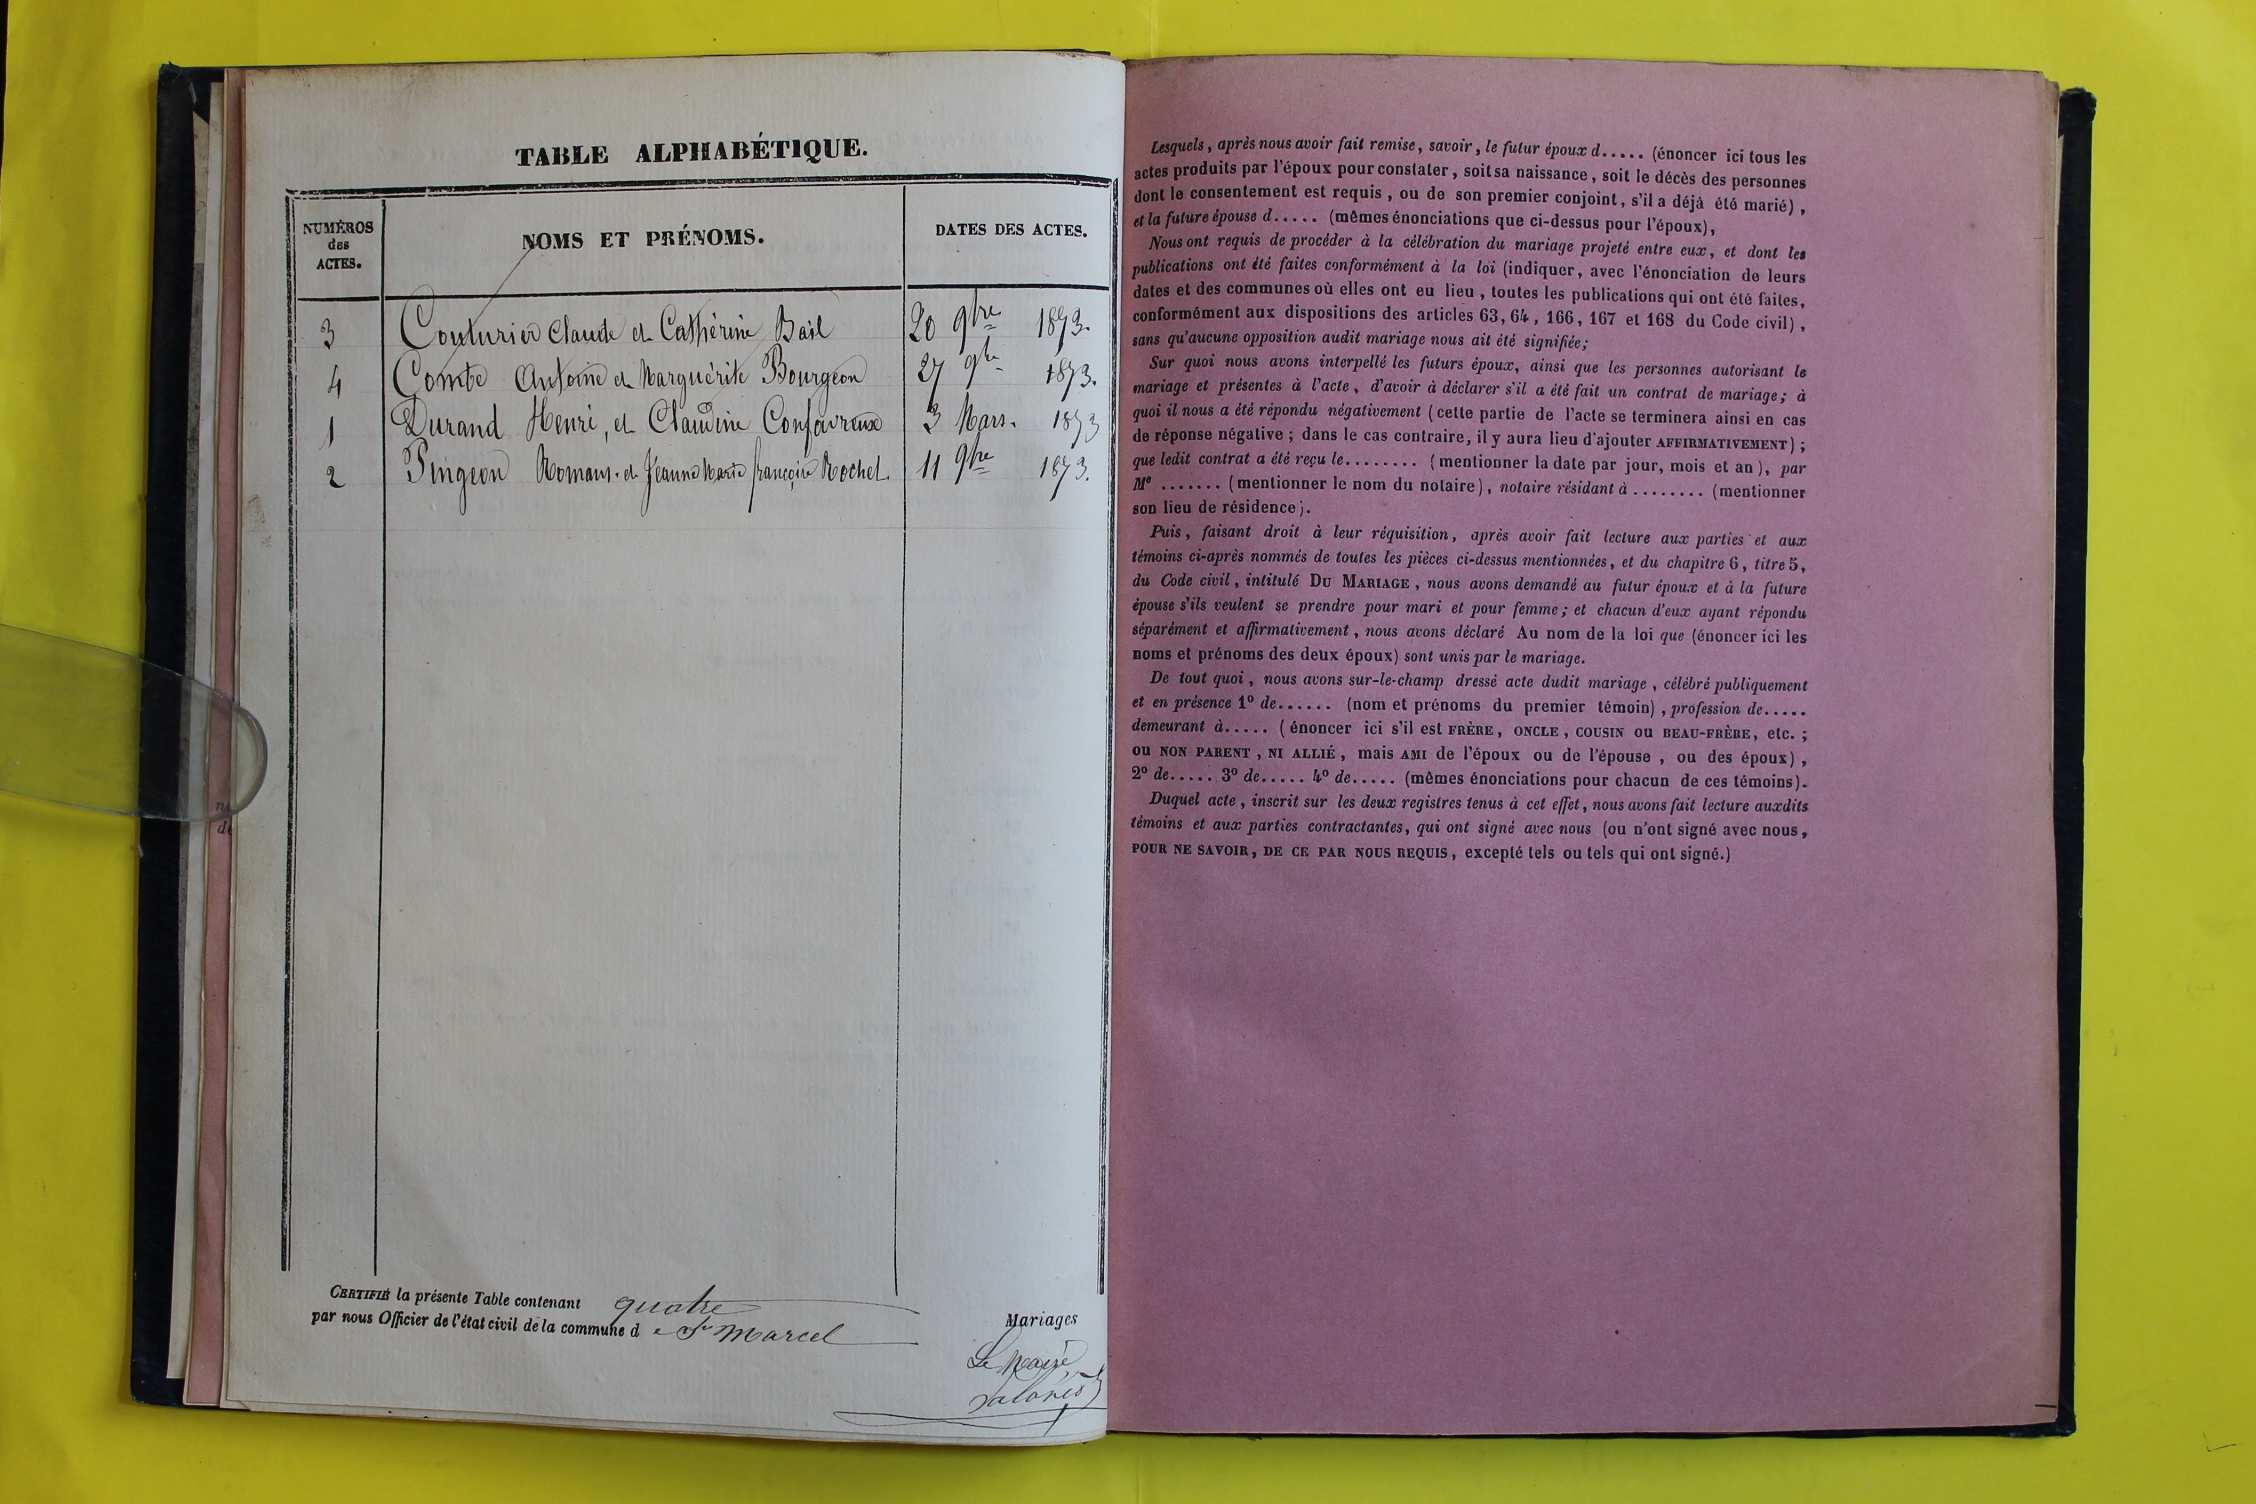 TABLE ALPHABÉTIQUE.
NUMÉROS
des
ACTES.
NOMS ET PRÉNOMS.
DATES DES ACTES.
3 Couturier Claude et Cathérine Bail 20 9bre 1873.
4 Combe Antoine et Marguérite Bourgeon 27 9bre 1873.
1 Durand Henri, et Claudine Confavreux 3 Mars. 1873
2 Pingeon Romans. et Jeanne Marie françoise Rochet. 11 9bre 1873.
CERTIFIÉ la présente Table contenant quatre Mariages
par nous Officier de l'état civil de la commune d e St Marcel
Le Maire
Lesquels, après nous avoir fait remise, savoir, le futur époux d..... (énoncer ici tous les
actes produits par l'époux pour constater, soit sa naissance, soit le décès des personnes
dont le consentement est requis, ou de son premier conjoint, s'il a déjà été marié),
et la future épouse d..... (mêmes énonciations que ci-dessus pour l'époux),
Nous ont requis de procéder à la célébration du mariage projeté entre eux, et dont les
publications ont été faites conformément à la loi (indiquer, avec l'énonciation de leurs
dates et des communes où elles ont eu lieu, toutes les publications qui ont été faites,
conformément aux dispositions des articles 63, 64, 166, 167 et 168 du Code civil),
sans qu'aucune opposition audit mariage nous ait été signifiée;
Sur quoi nous avons interpellé les futurs époux, ainsi que les personnes autorisant le
mariage et présentes à l'acte, d'avoir à déclarer s'il a été fait un contrat de mariage; à
quoi il nous a été répondu négativement (cette partie de l'acte se terminera ainsi en cas
de réponse négative; dans le cas contraire, il y aura lieu d'ajouter AFFIRMATIVEMENT);
que ledit contrat a été reçu le........ (mentionner la date par jour, mois et an), par
Me ....... (mentionner le nom du notaire), notaire résidant à ........ (mentionner
son lieu de résidence).
Puis, faisant droit à leur réquisition, après avoir fait lecture aux parties et aux
témoins ci-après nommés de toutes les pièces ci-dessus mentionnées, et du chapitre 6, titre 5,
du Code civil, intitulé DU MARIAGE, nous avons demandé au futur époux et à la future
épouse s'ils veulent se prendre pour mari et pour femme; et chacun d'eux ayant répondu
séparément et affirmativement, nous avons déclaré Au nom de la loi que (énoncer ici les
noms et prénoms des deux époux) sont unis par le mariage.
De tout quoi, nous avons sur-le-champ dressé acte dudit mariage, célébré publiquement
et en présence 1º de...... (nom et prénoms du premier témoin), profession de.....
demeurant à..... (énoncer ici s'il est FRÈRE, ONCLE, COUSIN ou BEAU-FRÈRE, etc.;
ou NON PARENT, NI ALLIÉ, mais AMI de l'époux ou de l'épouse, ou des époux),
2º de..... 3º de..... 4º de..... (mêmes énonciations pour chacun de ces témoins).
Duquel acte, inscrit sur les deux registres tenus à cet effet, nous avons fait lecture auxdits
témoins et aux parties contractantes, qui ont signé avec nous (ou n'ont signé avec nous,
POUR NE SAVOIR, DE CE PAR NOUS REQUIS, excepté tels ou tels qui ont signé.)